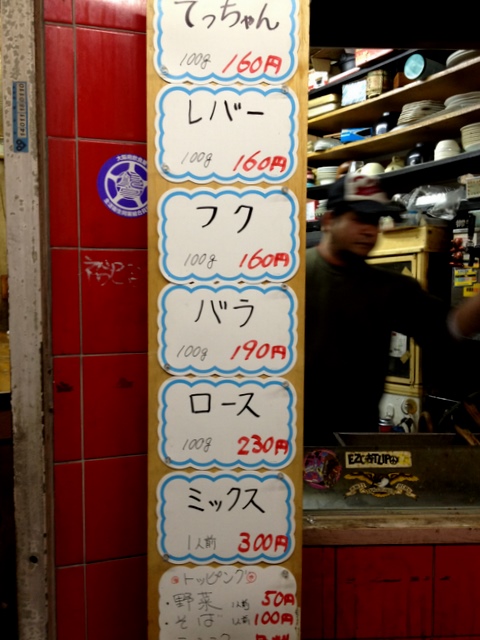 てっちゃん
100g 160円
レバー
100g 160円
フク
100g 160円
バラ
100g 190円
ロース
100g 230円
ミックス
1人前 300円
トッピング
・野菜 1人前 50円
・そば 1人前 100円